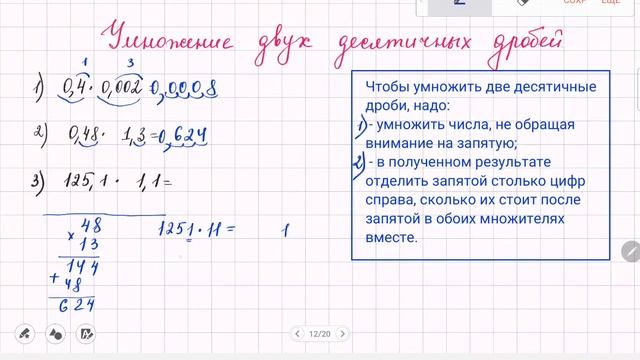 Умножение двух десятичных дробей
1 3
1) 0,4 · 0,002 0,0008
2) 0,48 · 1,3 = 0,624
3) 125,1 · 1,1 =
× 48
13
144
+ 48
624
1251 · 11 = 1
Чтобы умножить две десятичные
дроби, надо:
1) - умножить числа, не обращая
внимание на запятую;
2) - в полученном результате
отделить запятой столько цифр
справа, сколько их стоит после
запятой в обоих множителях
вместе.
12/20